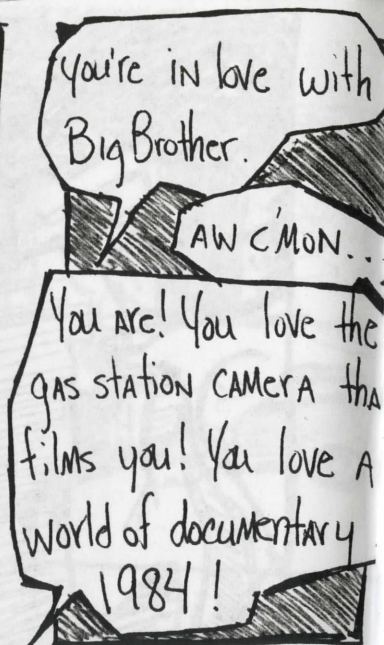 you're in love with
Big Brother.
AW C'MON...
You Are! You love the
gAS stAtioN CAMerA thA
films you! You love A
world of documentary
1984!